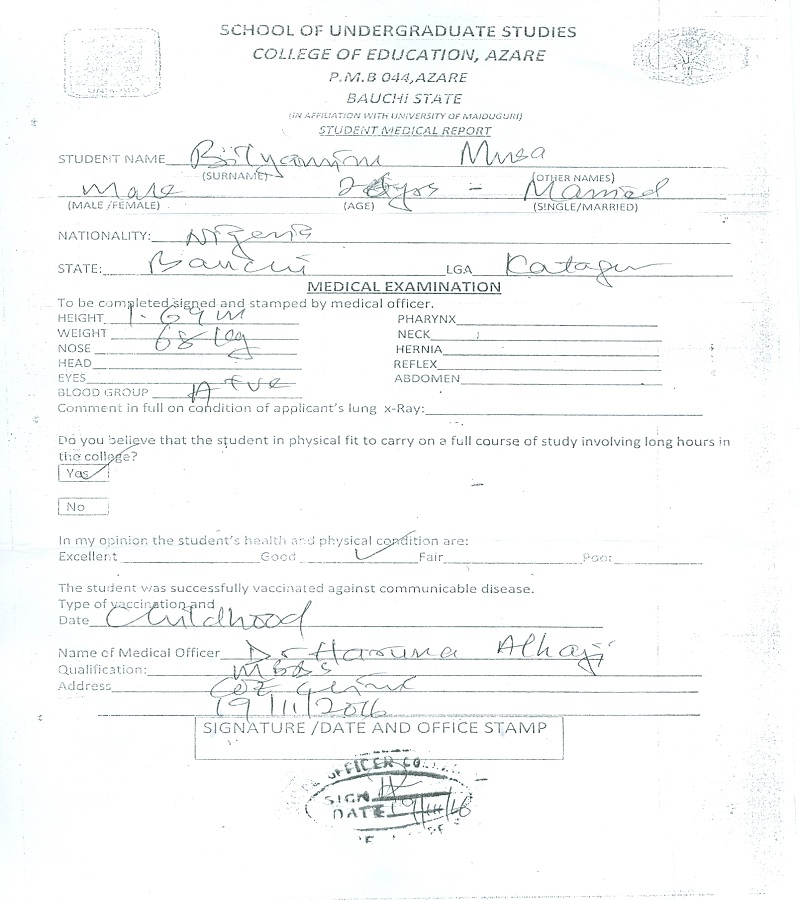 SCHOOL OF UNDERGRADUATE STUDIES
COLLEGE OF EDUCATION, AZARE
P.M.B 044,AZARE
BAUCHI STATE
(IN AFFILIATION WITH UNIVERSITY OF MAIDUGURI)
STUDENT MEDICAL REPORT
STUDENT NAME Bilyaminu Musa
(SURNAME) (OTHER NAMES)
Male yrs - Married
(MALE /FEMALE) (AGE) (SINGLE/MARRIED)
NATIONALITY: Nigeria
STATE: Bauchi LGA Katagum
MEDICAL EXAMINATION
To be completed signed and stamped by medical officer.
HEIGHT 1.69m PHARYNX
WEIGHT 68kg NECK
NOSE HERNIA
HEAD REFLEX
EYES ABDOMEN
BLOOD GROUP A +ve
Comment in full on condition of applicant's lung x-Ray:
Do you believe that the student in physical fit to carry on a full course of study involving long hours in
the college?
Yes
No
In my opinion the student's health and physical condition are:
Excellent Good Fair Poor
The student was successfully vaccinated against communicable disease.
Type of vaccination and
Date Childhood
Name of Medical Officer Dr Haruna Alhaji
Qualification: MBBS
Address COE Clinic
19/11/2016
SIGNATURE /DATE AND OFFICE STAMP
OFFICER CO
SIGN
DATE 19/11/16